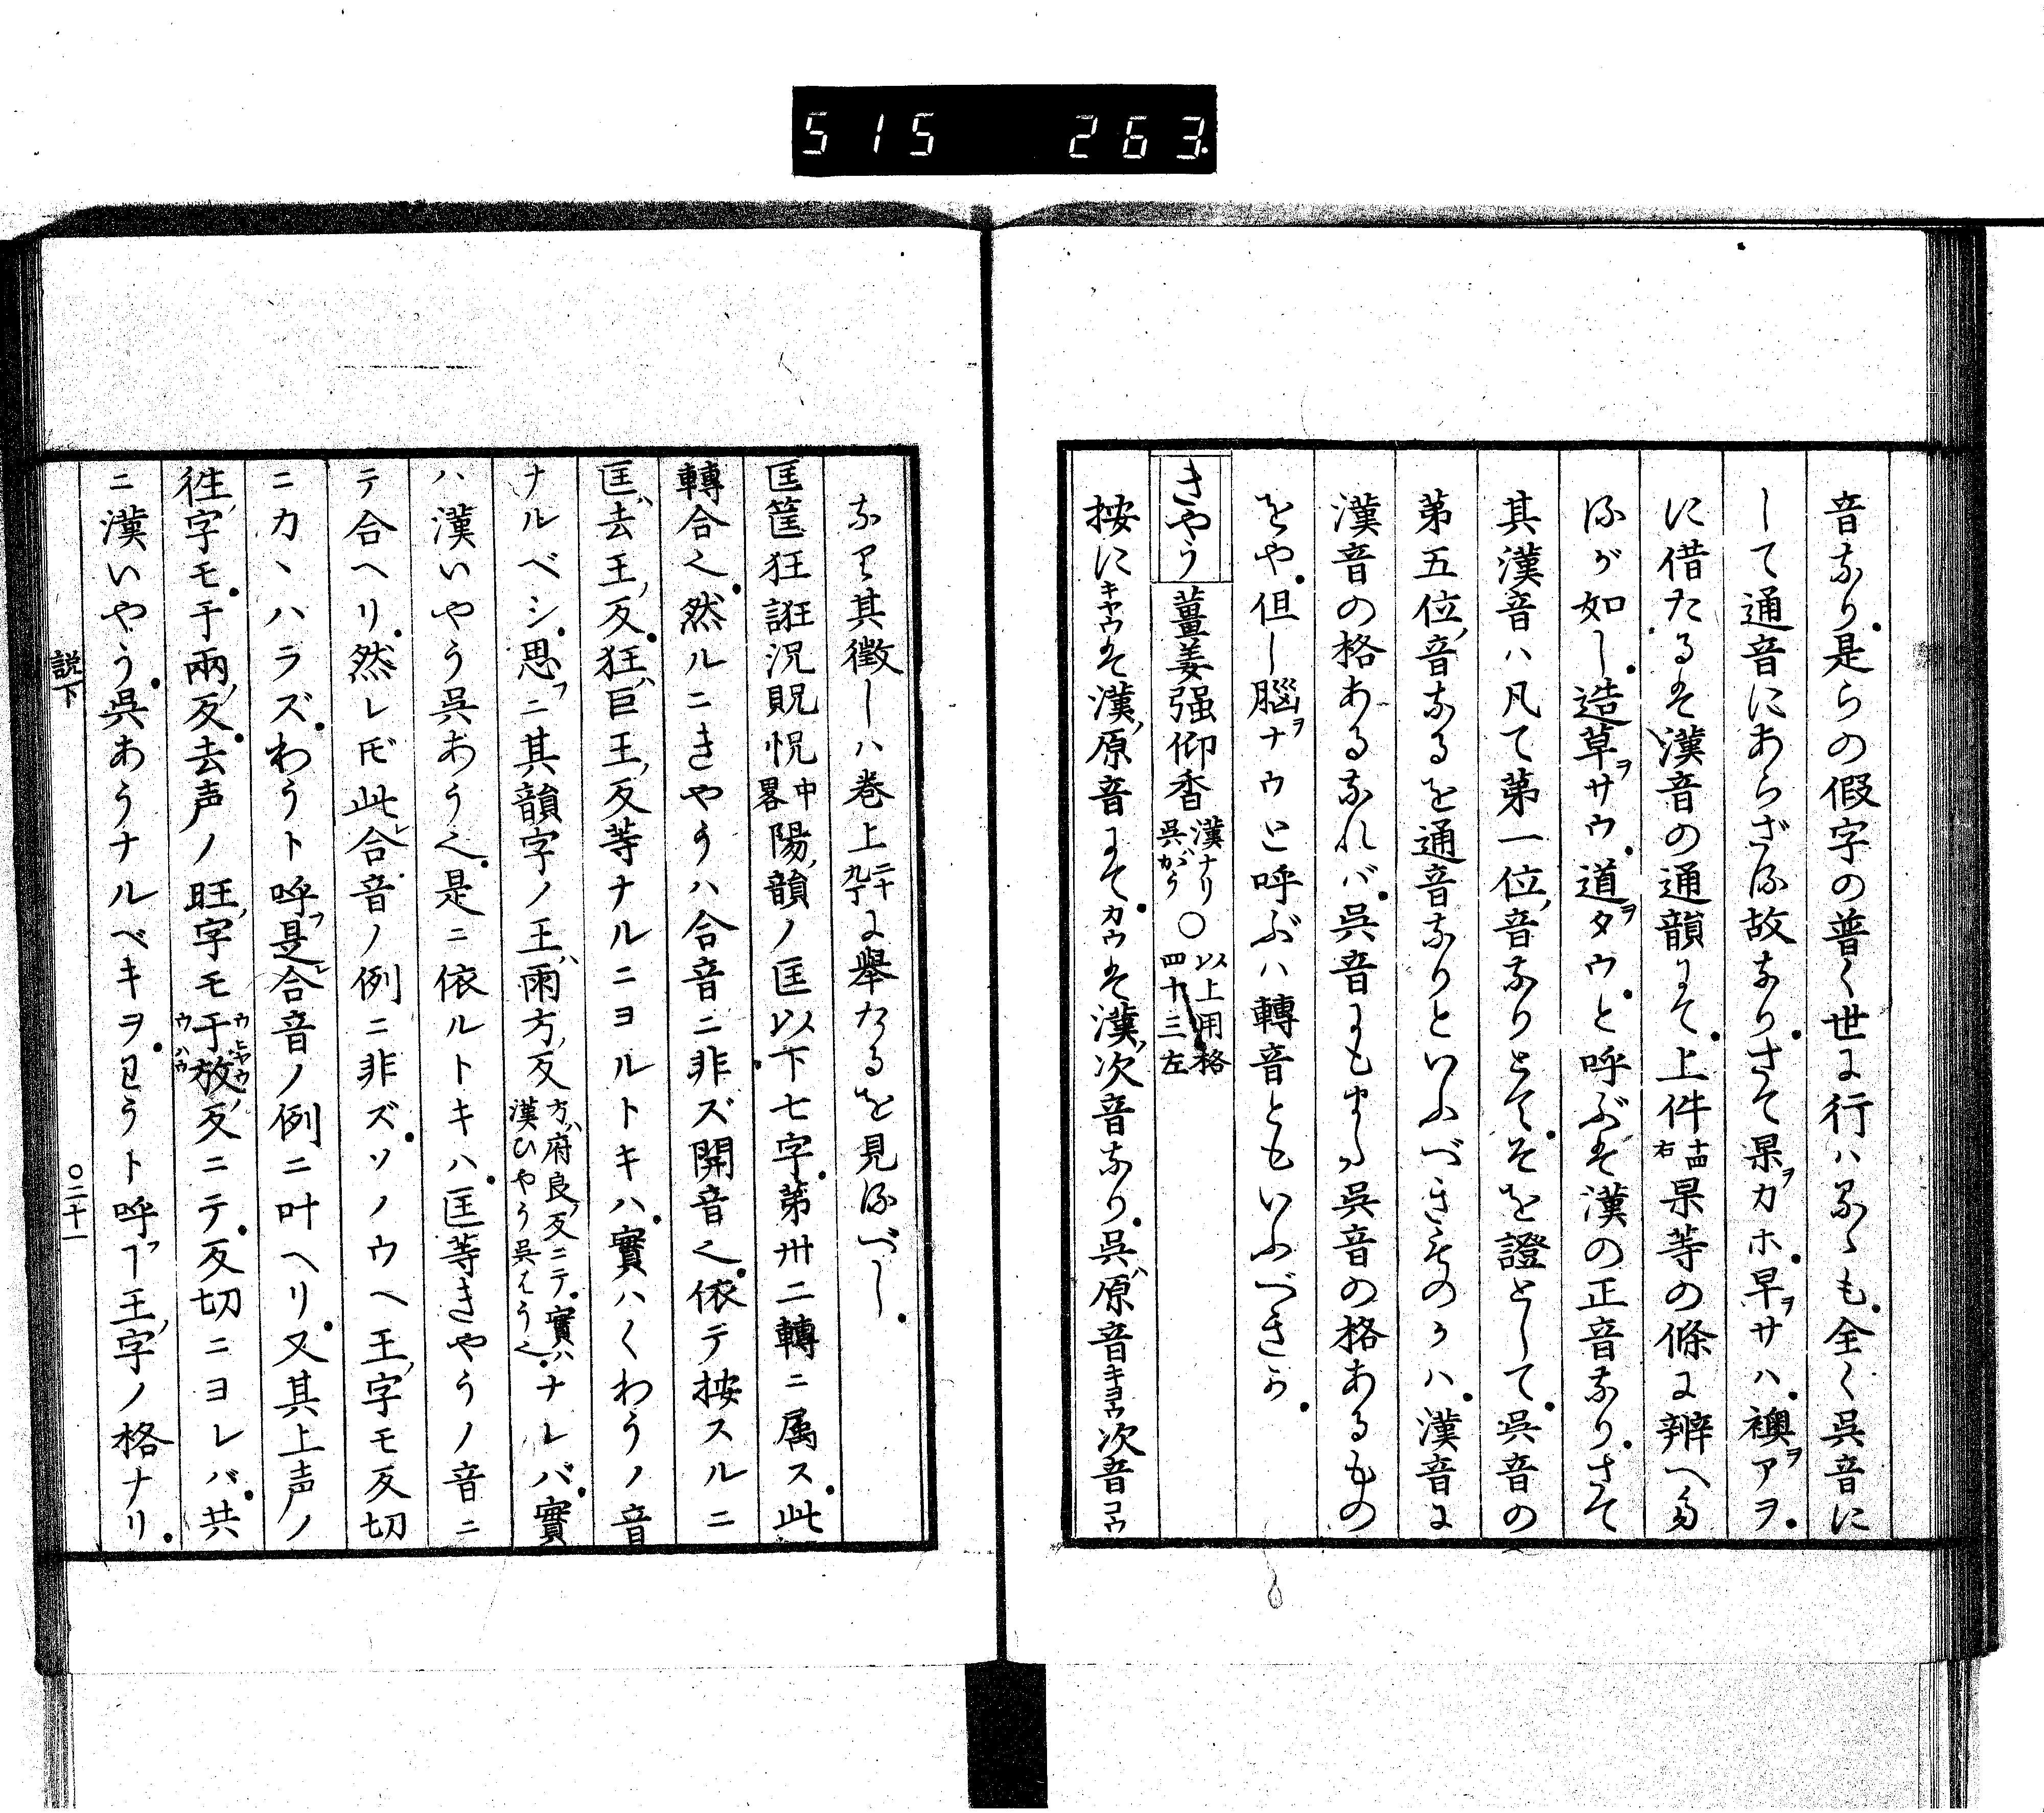 515 263
音なり是らの假字の普く世に行ハるゝも全く呉音に
して通音にあらざる故なりさて杲ヲカホ早ヲサハ襖ヲアヲ
に借たるそ漢音の通韻にて上件十四右杲等の條に辨へる
るが如し造草ヲサウ道ヲタウと呼ぶそ漢の正音なりさて
其漢音ハ凡て第一位音なりとてそを證として呉音の
第五位音なるを通音なりといふべきものかハ漢音に
漢音の格あるなれバ呉音にもまた呉音の格あるもの
をや但し腦ヲナウと呼ぶハ轉音ともいふべきか
きやう 薑姜强仰香 漢ナリ呉ハがう ○ 以上用格四十三左
按にキヤウそ漢原音にてカウそ漢次音なり呉ハ原音キヨウ次音コウ
なり其徴しハ巻上二十九丁に擧たるを見るべし
匡筐狂誑況貺怳中畧陽韻ノ匡以下七字第卅二轉ニ属ス此
轉合く然ルニきやうハ合音ニ非ズ開音く依テ按スルニ
匡ハ去王反狂ハ巨王反等ナルニヨルトキハ實ハくわうノ音
ナルベシ思フニ其韻字ノ王ハ雨方反方ハ府良反ニテ實ハ漢ひやう呉はうくナレバ實
ハ漢いやう呉あうく是ニ依ルトキハ匡等きやうノ音ニ
テ合ヘリ然レドモ此レ合音ノ例ニ非ズソノウヘ王字モ反切
ニカヽハラズわうト呼フ是レ合音ノ例ニ叶ヘリ又其上声ノ
徃字モ于兩反去声ノ旺字モ于放反ニテ反切ニヨレバ共
ニ漢いやう呉あうナルベキヲわうト呼フヿ王字ノ格ナリ
説下
○二十一